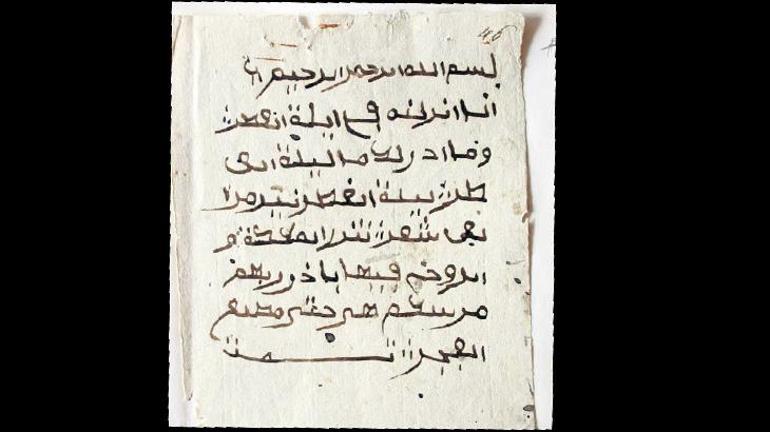 46
بسم الله الرحمن الرحيم
انا انزلنه في ليلة القدر
وما ادريك ما ليلة الق
در ليلة القدر خير من ا
لف شهر تنزل الملئكة و
الروح فيها باذن ربهم
سلم هي حتى مطلع
الفجر تمت